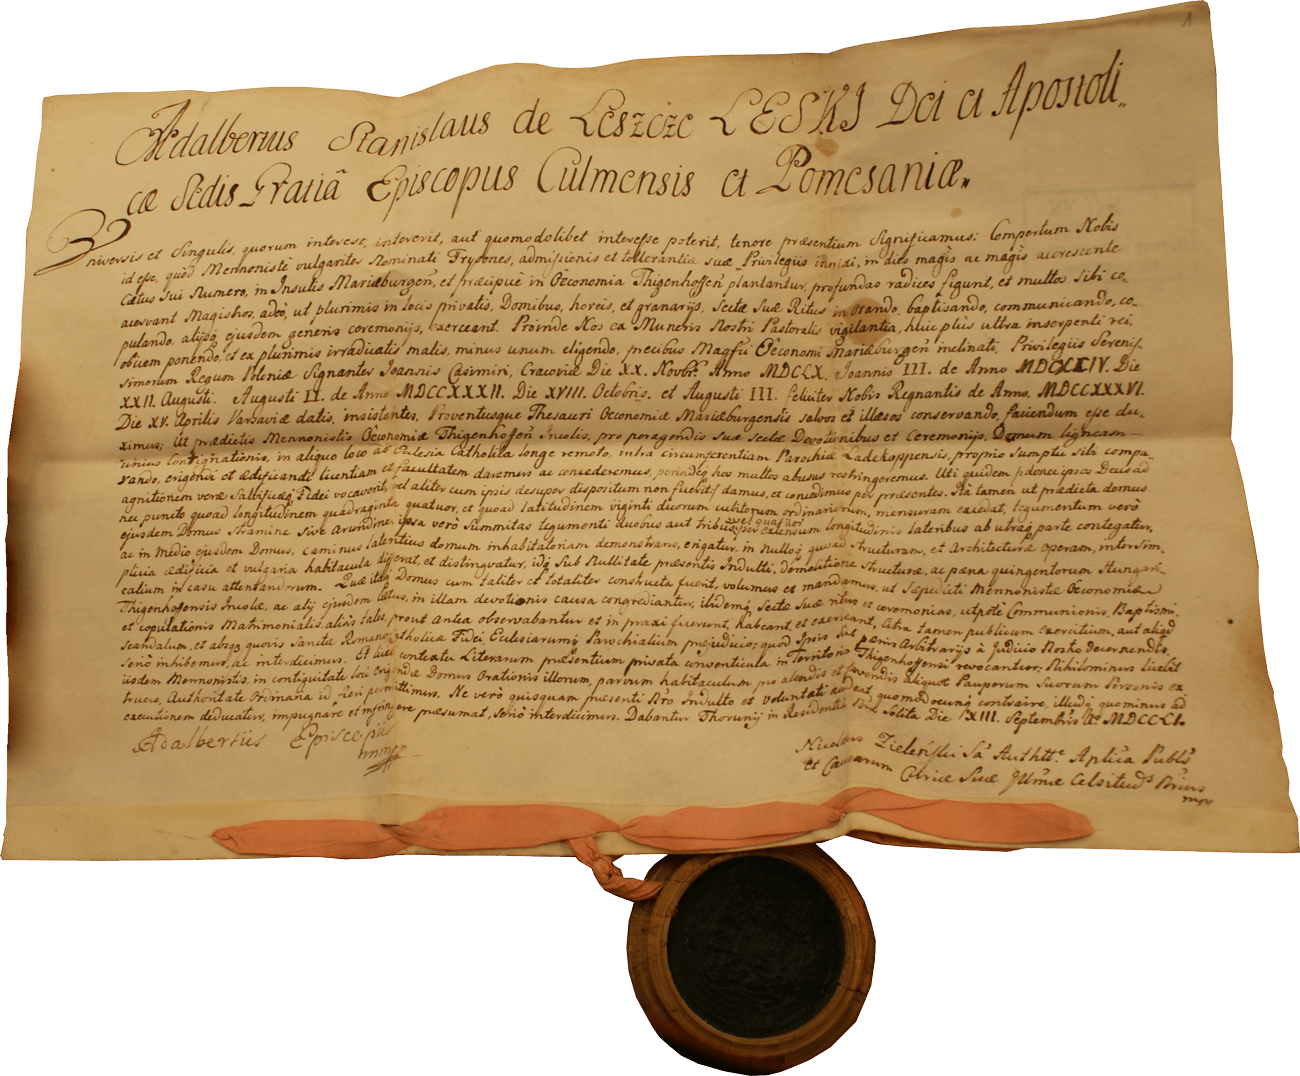 Adalbertus Stanislaus de Leszcze LESKI Dei et Apostoli,,
cæ Sedis Gratiâ Episcopus Culmensis et Pomesaniæ,,
Universis et Singulis, quorum interest, intererit, aut quomodolibet interesse poterit, tenore præsentium Significamus: Compertum Nobis
id esse, quòd Mennonistè vulgariter Nominati Frysones, admissionis et tollerantiæ suæ Privilegiis innixi, in dies magìs ac magìs accrescente
Cætus sui Numero, in Insulis Mariæburgeñ, et præcipuè in Oeconomia Thigenhoffeñ plantantur, profundas radices figunt, et multos sibi co,,
acervant Magistros, adeò, ut plurimis in locis privatis, Domibus, horeis, et granarijs, Sectæ Suæ Ritus in orando, baptisando, communicando, co,,
pulando, alijsq ejusdem generis ceremonijs, exerceant. Proinde Nos ex Muneris Nostri Pastoralis vigilantia, huic plùs ultra inserpenti rei,
obicem ponendo, et ex plurimis irradicatis malis, minus unum eligendo, precibus Magfci Oeconomi Mariæburgeñ inclinati, Privilegiis Serenis,,
simorum Regum Poloniæ Signanter Joannis Casimiri, Cracoviæ Die XX. Novbr. Anno MDCLX. Joannis III. de Anno MDCXCIV. Die
XXII. Augusti. Augusti II. de Anno MDCCXXXII. Die XVIII. Octobris. et Augusti III. feliciter Nobis Regnantis de Anno. MDCCXXXVI.
Die XV. Aprilis Varsaviæ datis, insistentes, Proventusque Thesauri Oeconomiæ Mariæburgensis salvos et illæsos conservando, faciendum esse du,,
ximus; Ut prædictis Mennonistis Oeconomiæ Thigenhoffeñ Incolis, pro peragendis suæ Sectæ Devotionibus et Ceremonijs, Domum ligneam
unius Contignationis, in aliquo loco ab Ecclesia Catholica longe remoto, intra circumferentiam Parochiæ Ladekoppensis, proprio Sumptu sibi compa,,
rando, erigendi et ædificandi licentiam et facultatem daremus ac concederemus, perindeq hos multos abusus restringeremus. Uti quidem donec ipsos Deus ad
agnitionem veræ Salvificæq Fidei vocaverit, vel aliter cum ipsis desuper dispositum non fuerit damus, et concedimus per præsentes. Ità tamen ut prædicta domus
nec puncto quoad longitudinem quadraginta quatuor, et quoad latitudinem viginti duorum cubitorum ordinariorum, mensuram excedat, tegumentum verò
ejusdem Domus Stramine sive Arundine, ipsa verò Summitas tegumenti duobus aut tribus, vel quatuor per extensum longitudinis lateribus ab utraq parte contegatur,
ac in medio ejusdem Domus, caminus latentius domum inhabitatoriam demonstrans, erigatur, in nullo quoad Structuram, et Architecturæ operam, intersim,,
plicia ædificia et vulgaria habitacula differat, et distinguatur, idq sub Nullitate præsentis Indulti, demolitione Structuræ, ac pæna quingentorum Hungari,,
catium in casu attentandrum. Quæ itaq Domus cum taliter et totaliter constructa fuerit, volumus et mandamus, ut Sæpedicti Mennonistæ Oeconomiæ
Thigenhoffensis Incolæ, ac alij ejusdem Cætus, in illam devotionis causa congrediantur, ibidemq Sectæ Suæ ritus et ceremonias, utpotè Communionis, Baptismi,
et copulationis Matrimonialis, aliàs tales, prout Antea observabantur et in praxi fuerunt, habeant, et exerceant, Absq tamen publicum exercitium, aut aliqd
scandalum, et absq quovis Sanctæ Romanæ Catholicæ Fidei Ecclesiarumq Parochialium præjudicio; quod Ipsis Sub pænis Arbitrarijs à Judicio Nostro decernendis,
seriò inhibemus, ac interdicimus. Et licèt contextu Literarum præsentium privata conventicula in Territorio Thigenhoffensi revocantur; Nihilominus licebit
iisdem Mennonistis, in contiguitate loci erigendæ Domus Orationis illorum, parvum habitaculum pro alendis et fovendis aliquot Pauperum Suorum Personis ex,,
truere, Authoritate Ordinaria id fieri permittimus. Ne verò quisquam præsenti Nro Indulto et voluntati audeat quomodocunq contraire, illudq quominus ad
executionem deducatur, impugnare et infringere præsumat, seriò interdicimus. Dabantur Thorunij in Residentia Nra Solita Die XIII. Septembris Aº MDCCLI.
Adalbertus Episcopus
mmp
Nicolaus Zieleński Sa Authtte Aplica Publs
et Causarum Curiæ Suæ Illmæ Celsitudis Notrius
mpr